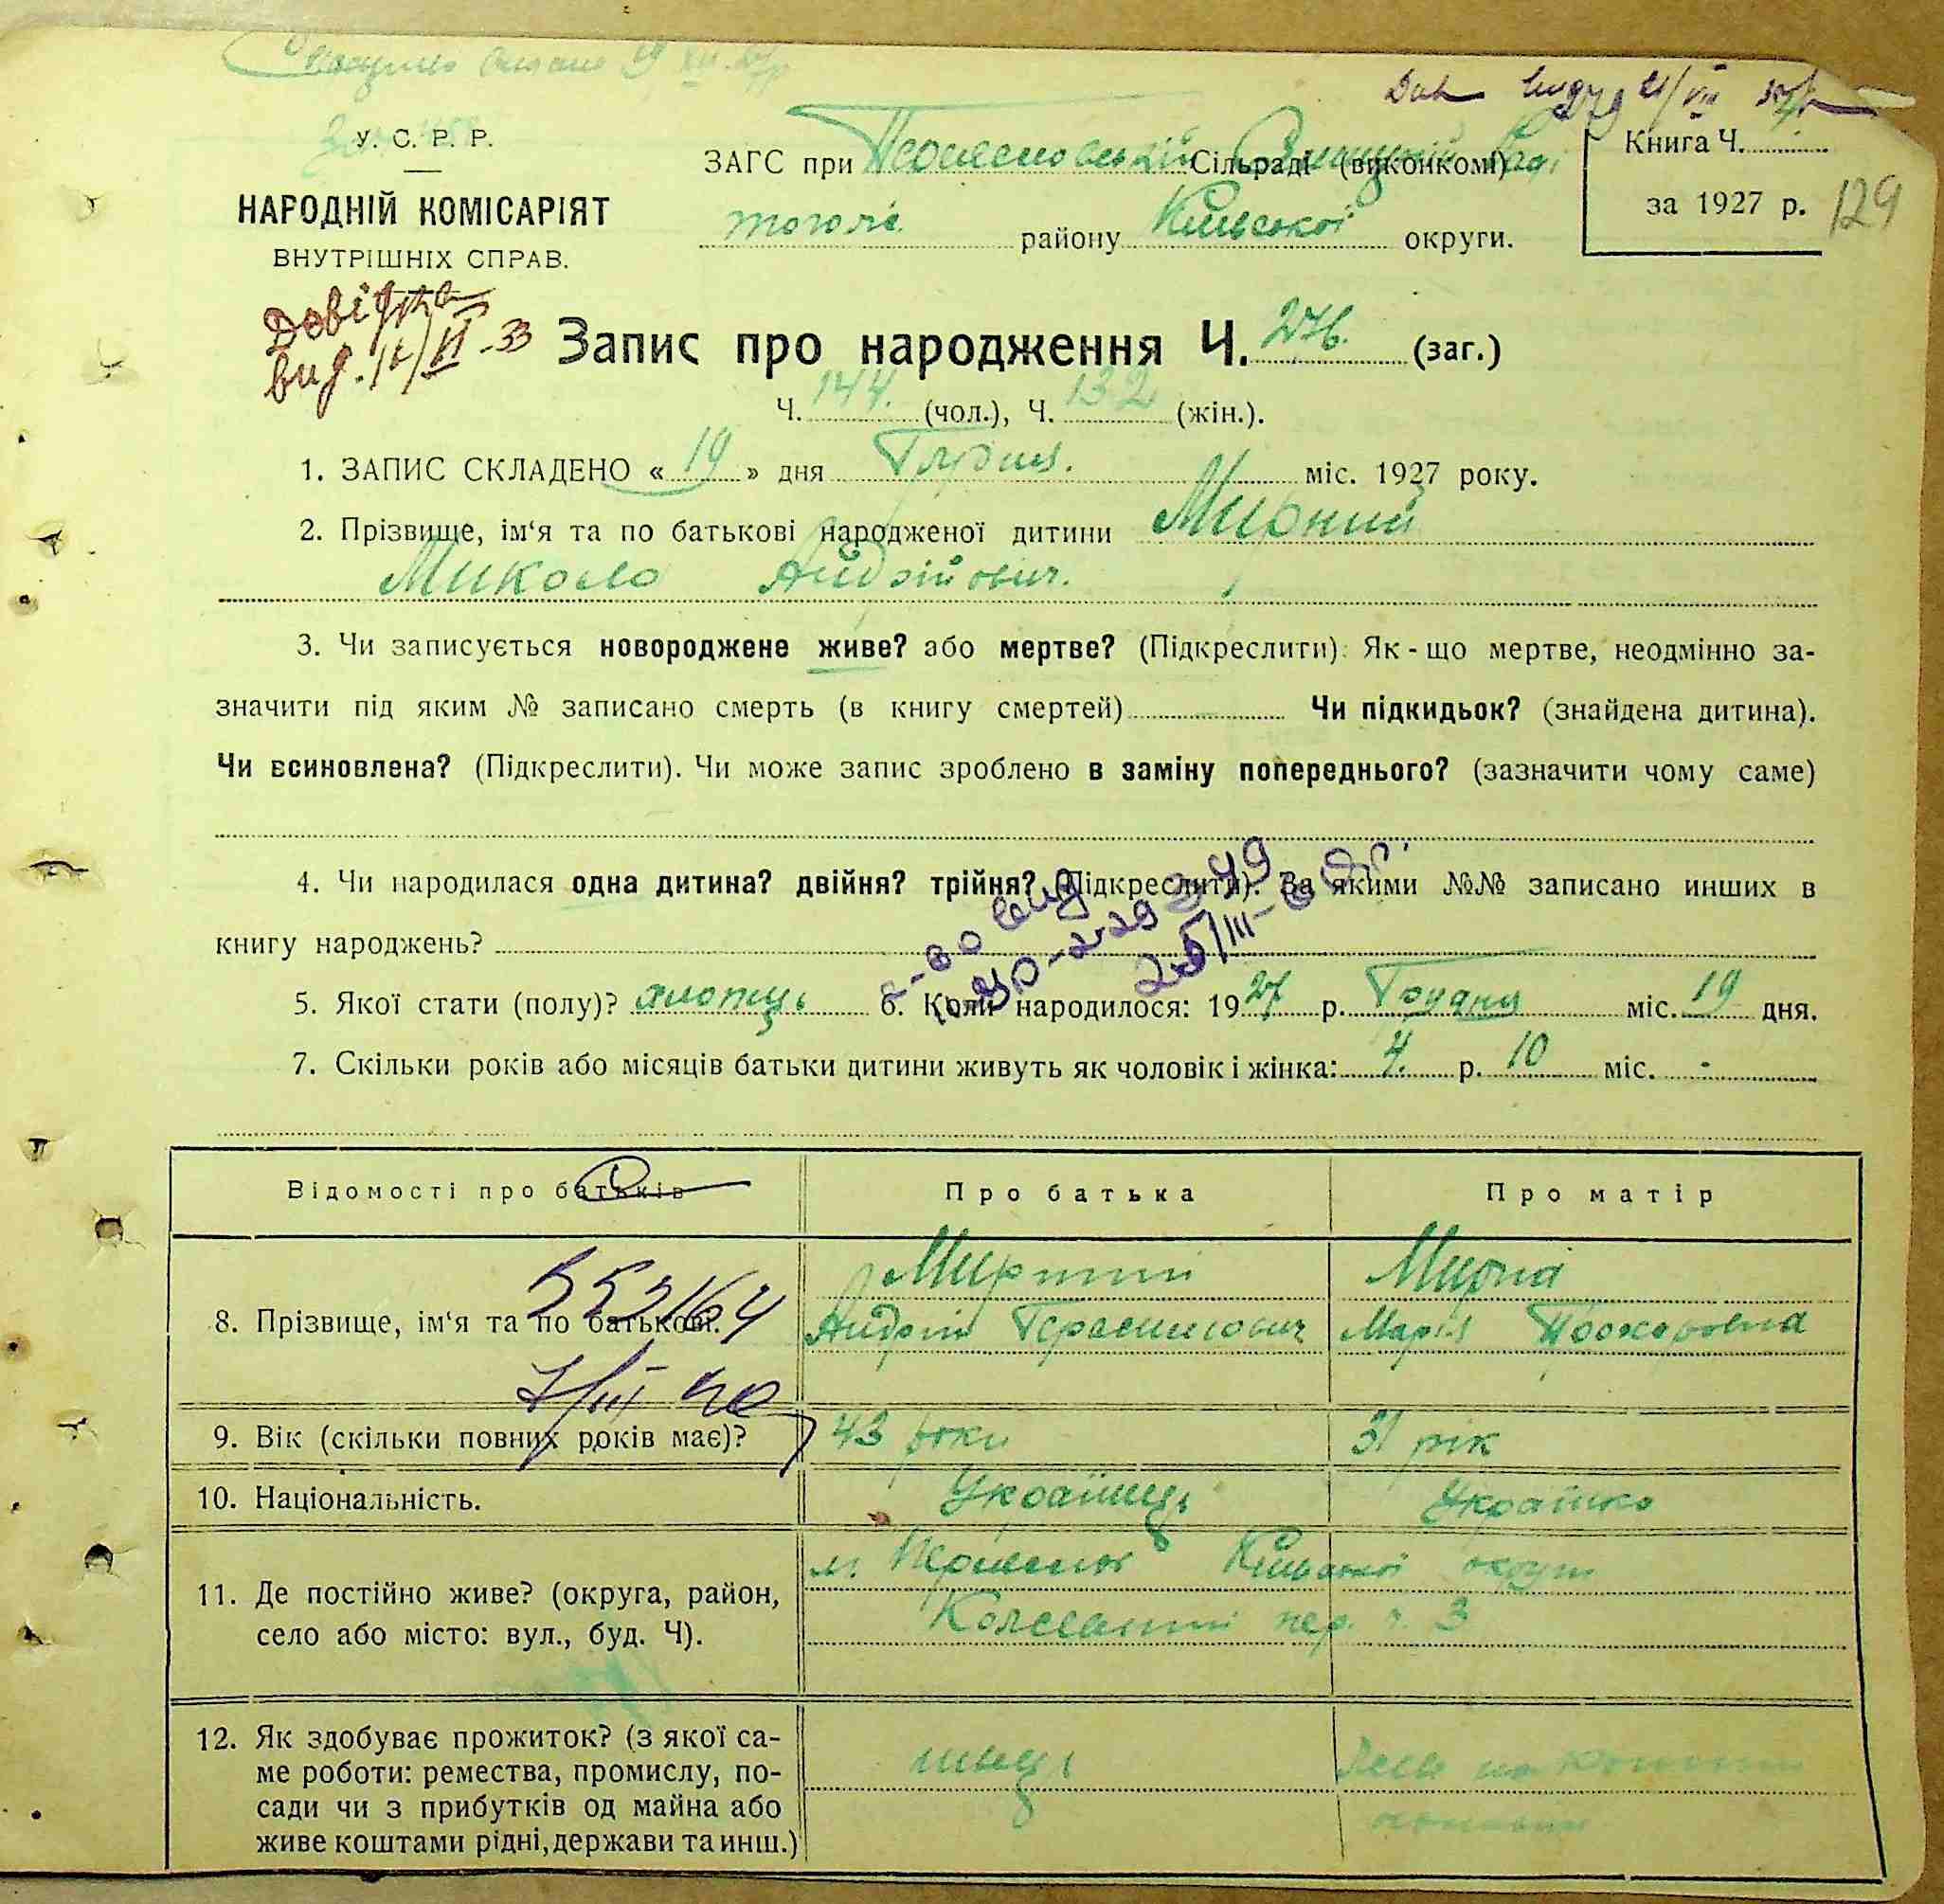 У. С. Р. Р.
НАРОДНІЙ КОМІСАРІЯТ
ВНУТРІШНІХ СПРАВ.
ЗАГС при Сільраді (виконкомі)
тогоже району Київської округи.
Книга Ч.
за 1927 р. 129
Довідка
вид. VI-33
Запис про народження Ч. 276. (заг.)
Ч. 144. (чол.), Ч. 132 (жін.).
1. ЗАПИС СКЛАДЕНО « 19 » дня Грудня. міс. 1927 року.
2. Прізвище, ім‘я та по батькові народженої дитини Мирний
Микола Андрійович.
3. Чи записується новороджене живе? або мертве? (Підкреслити). Як-що мертве, неодмінно за-
значити під яким № записано смерть (в книгу смертей) Чи підкидьок? (знайдена дитина).
Чи всиновлена? (Підкреслити). Чи може запис зроблено в заміну попереднього? (зазначити чому саме)
4. Чи народилася одна дитина? двійня? трійня? (Підкреслити). За якими №№ записано инших в
книгу народжень?
5. Якої стати (полу)? хлопець 6. Коли народилося: 1927 р. Грудня міс. 19 дня.
7. Скільки років або місяців батьки дитини живуть як чоловік і жінка: 4. р. 10 міс. -
Відомості про батьків Про батька Про матір
8. Прізвище, ім‘я та по батькові. Мирний Андрій Герасимович Мирна Марія Прохоровна
9. Вік (скільки повних років має)? 43 роки 31 рік
10. Національність. Українець Українка
11. Де постійно живе? (округа, район, село або місто: вул., буд. Ч). м. Київської округи
пер. ч. 3
12. Як здобуває прожиток? (з якої са-
ме роботи: ремества, промислу, по-
сади чи з прибутків од майна або
живе коштами рідні, держави та инш.)
швець